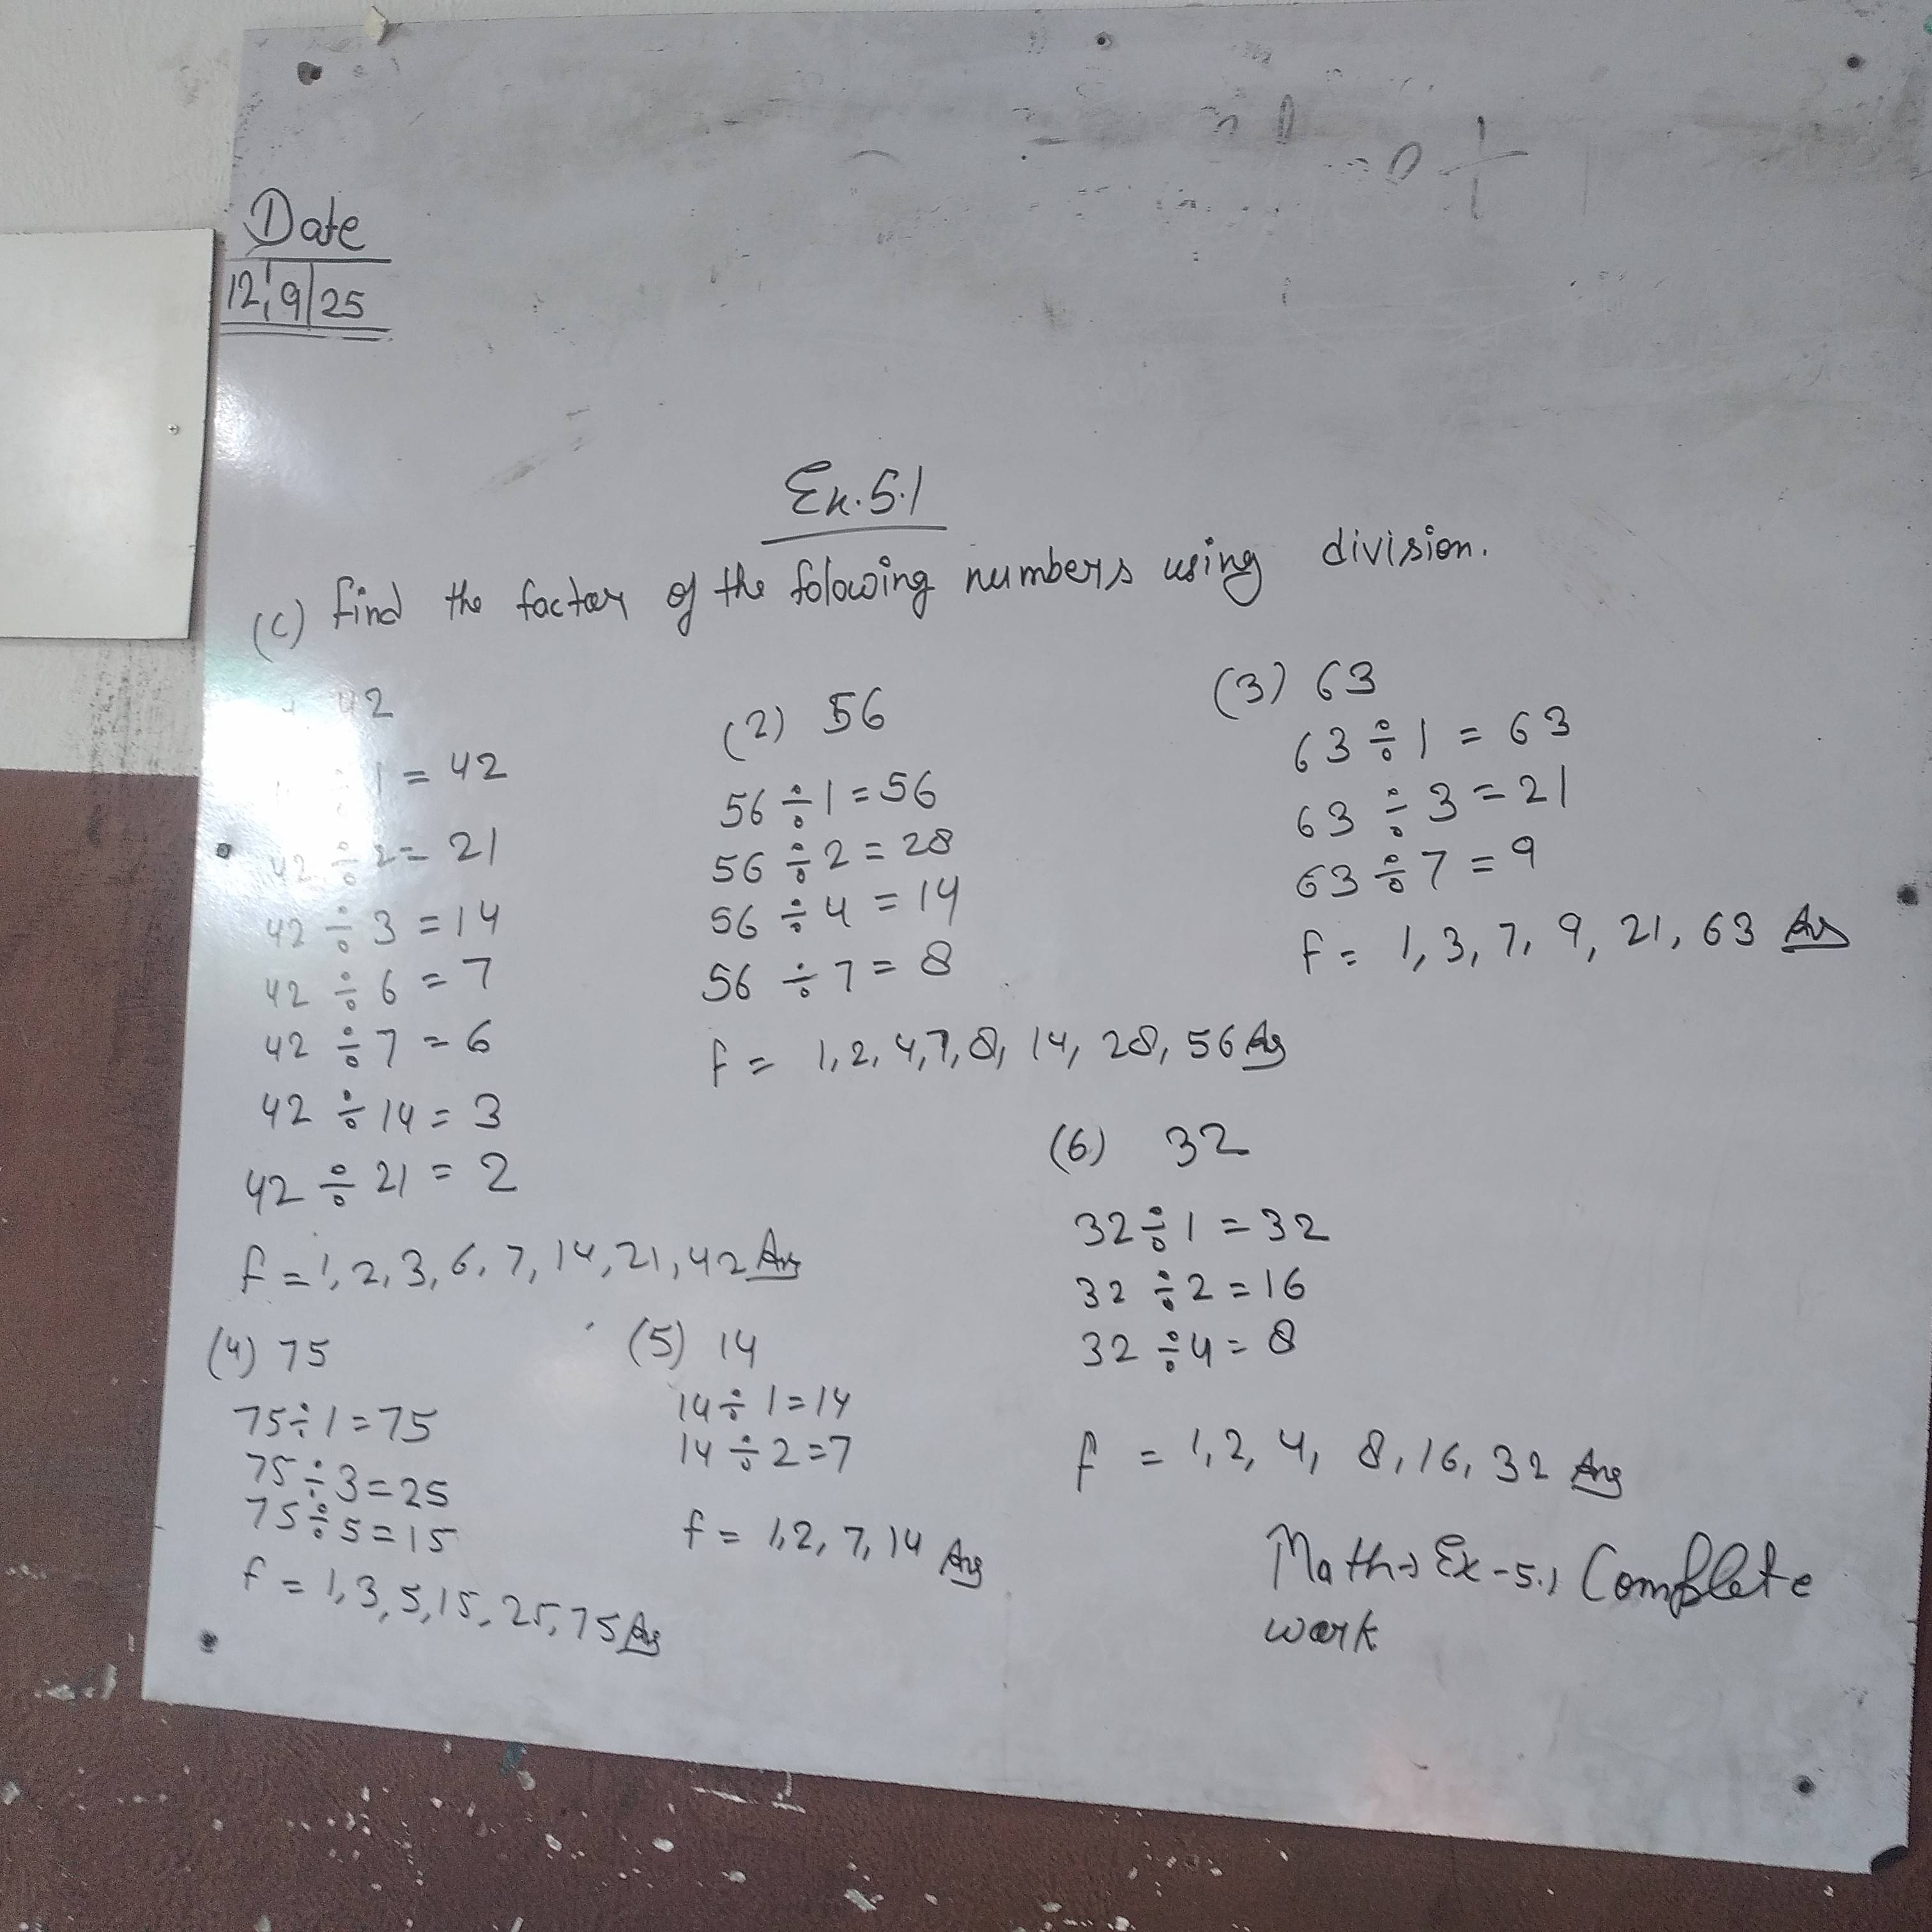 Date
12/9/25
Ex.5.1
(c) find the factor of the folowing numbers using division.
42
1 = 42
42 ÷ 2 = 21
42 ÷ 3 = 14
42 ÷ 6 = 7
42 ÷ 7 = 6
42 ÷ 14 = 3
42 ÷ 21 = 2
f = 1, 2, 3, 6, 7, 14, 21, 42 Ans
(2) 56
56 ÷ 1 = 56
56 ÷ 2 = 28
56 ÷ 4 = 14
56 ÷ 7 = 8
f = 1, 2, 4, 7, 8, 14, 28, 56 Ans
(3) 63
63 ÷ 1 = 63
63 ÷ 3 = 21
63 ÷ 7 = 9
f = 1, 3, 7, 9, 21, 63 Ans
(4) 75
75 ÷ 1 = 75
75 ÷ 3 = 25
75 ÷ 5 = 15
f = 1, 3, 5, 15, 25, 75 Ans
(5) 14
14 ÷ 1 = 14
14 ÷ 2 = 7
f = 1, 2, 7, 14 Ans
(6) 32
32 ÷ 1 = 32
32 ÷ 2 = 16
32 ÷ 4 = 8
f = 1, 2, 4, 8, 16, 32 Ans
Math → Ex - 5.1 Complete
work